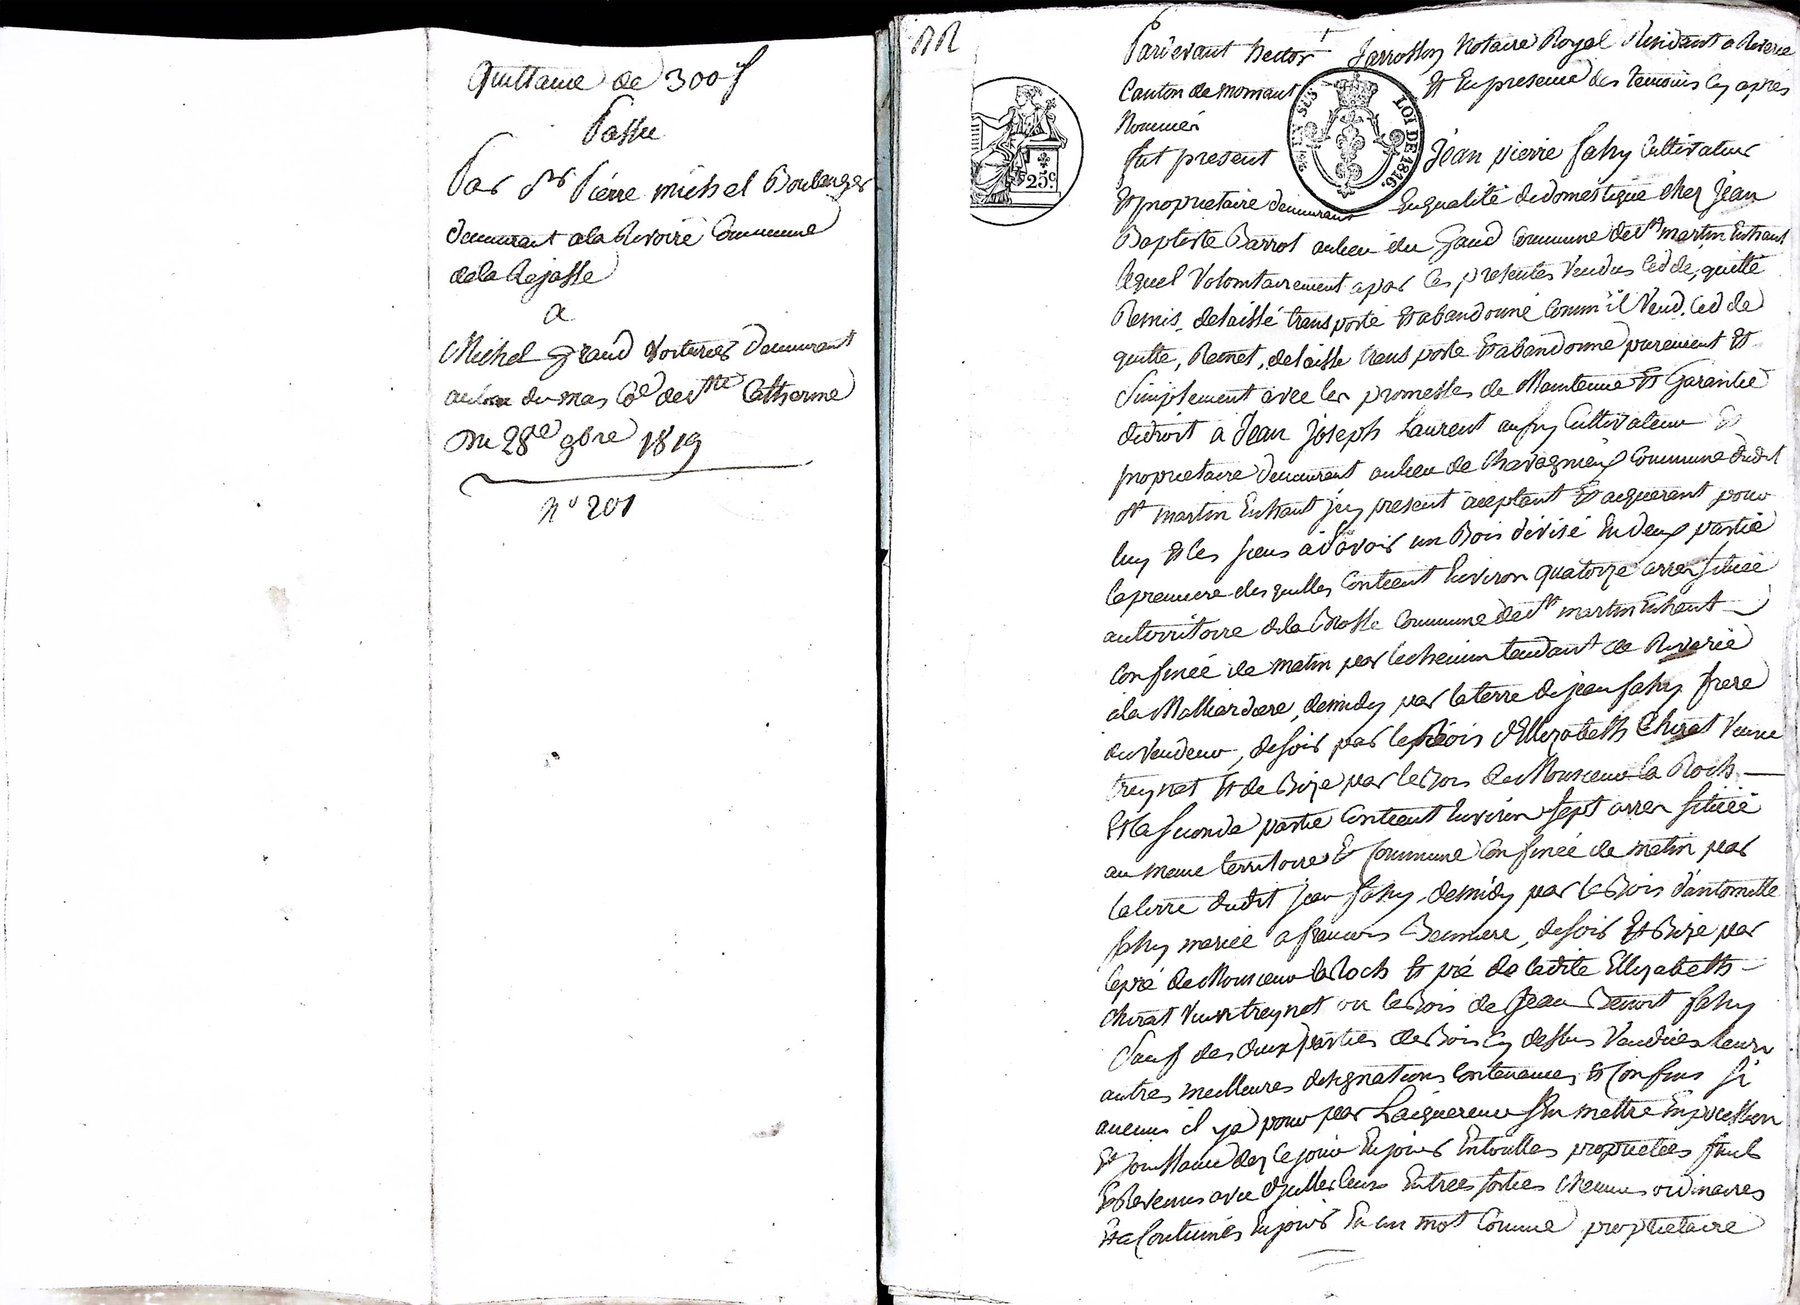 Quittance de 300 f
Passée
Par Sr Pierre Michel Boulanger
demeurant a la Rivoire Commune
de la Rejasse
a
Michel Grand Voiturier demeurant
au lieu du mas Cne de Ste Catherine
Du 28e 9bre 1819
n° 201
Pardevant hector Jarrosson Notaire Royal Residant a Riverie
Canton de mornant Et En presence des temoins Cy apres
Nommés
fut present Jean pierre fahy Cultivateur
Et proprietaire demeurant En qualité de domestique chez Jean
Baptiste Barrot au lieu du Grand Commune de St martin En haut
lequel Volontairement a par ces presentes Vendus Ced de, quitté
Remis, delaissé transporté Et abandonné Comm'il Vend, Ced de
quitte, Remet, delaisse trans porte Et abandonne purement Et
Simplement avec les promesses de Maintenue Et Garantie
de droit a Jean Joseph Laurent aufry Cultivateur Et
proprietaire demeurant au lieu de Chavagnieux Commune dudit
St martin En haut icy present acceptant Et acquerant pour
luy Et les siens a Savoir un Bois divisé En deux partie
la premiere des quelles Contient Environ quatorze arres situeé
au territoire de la Commune de St martin En haut
Con fineé de matin par le chemin tendant de Riverie
a la Malliardiere, de midy par la terre de jean fahy frere
du Vendeur, de soir par le Bois d'Ellizabeth Chirat Veuve
treynet Et de Bize par le Bois de Monsieur la Roch
Et la seconde partie Contient Environ sept arres situeé
au meme territoire Et Commune Con fineé de matin par
la terre dudit jean fahy, de midy par le Bois d'antoinette
fahy mariée a francois Besniere, de soir Et Bize par
le pré de Monsieur la Roch Et pré de ladite Ellizabeth
Chirat Veuve treynet ou le Bois de Jean Benoit fahy
Sauf des deux parties de Bois Cy dessus Vendües leurs
autres meilleures designations Contenances Et Confins si
aucuns il y a pour par L'acquereur s'En mettre En possession
Et jouissance dez ce jour En jouir En toutes proprietées fruits
Et Revenus avec d'yulles leurs Entrees sorties Chemins ordinaires
Et a Coutumés En jouir En un mot Comme proprietaire
25 c
25 EN SUS
LOI DE 1816.